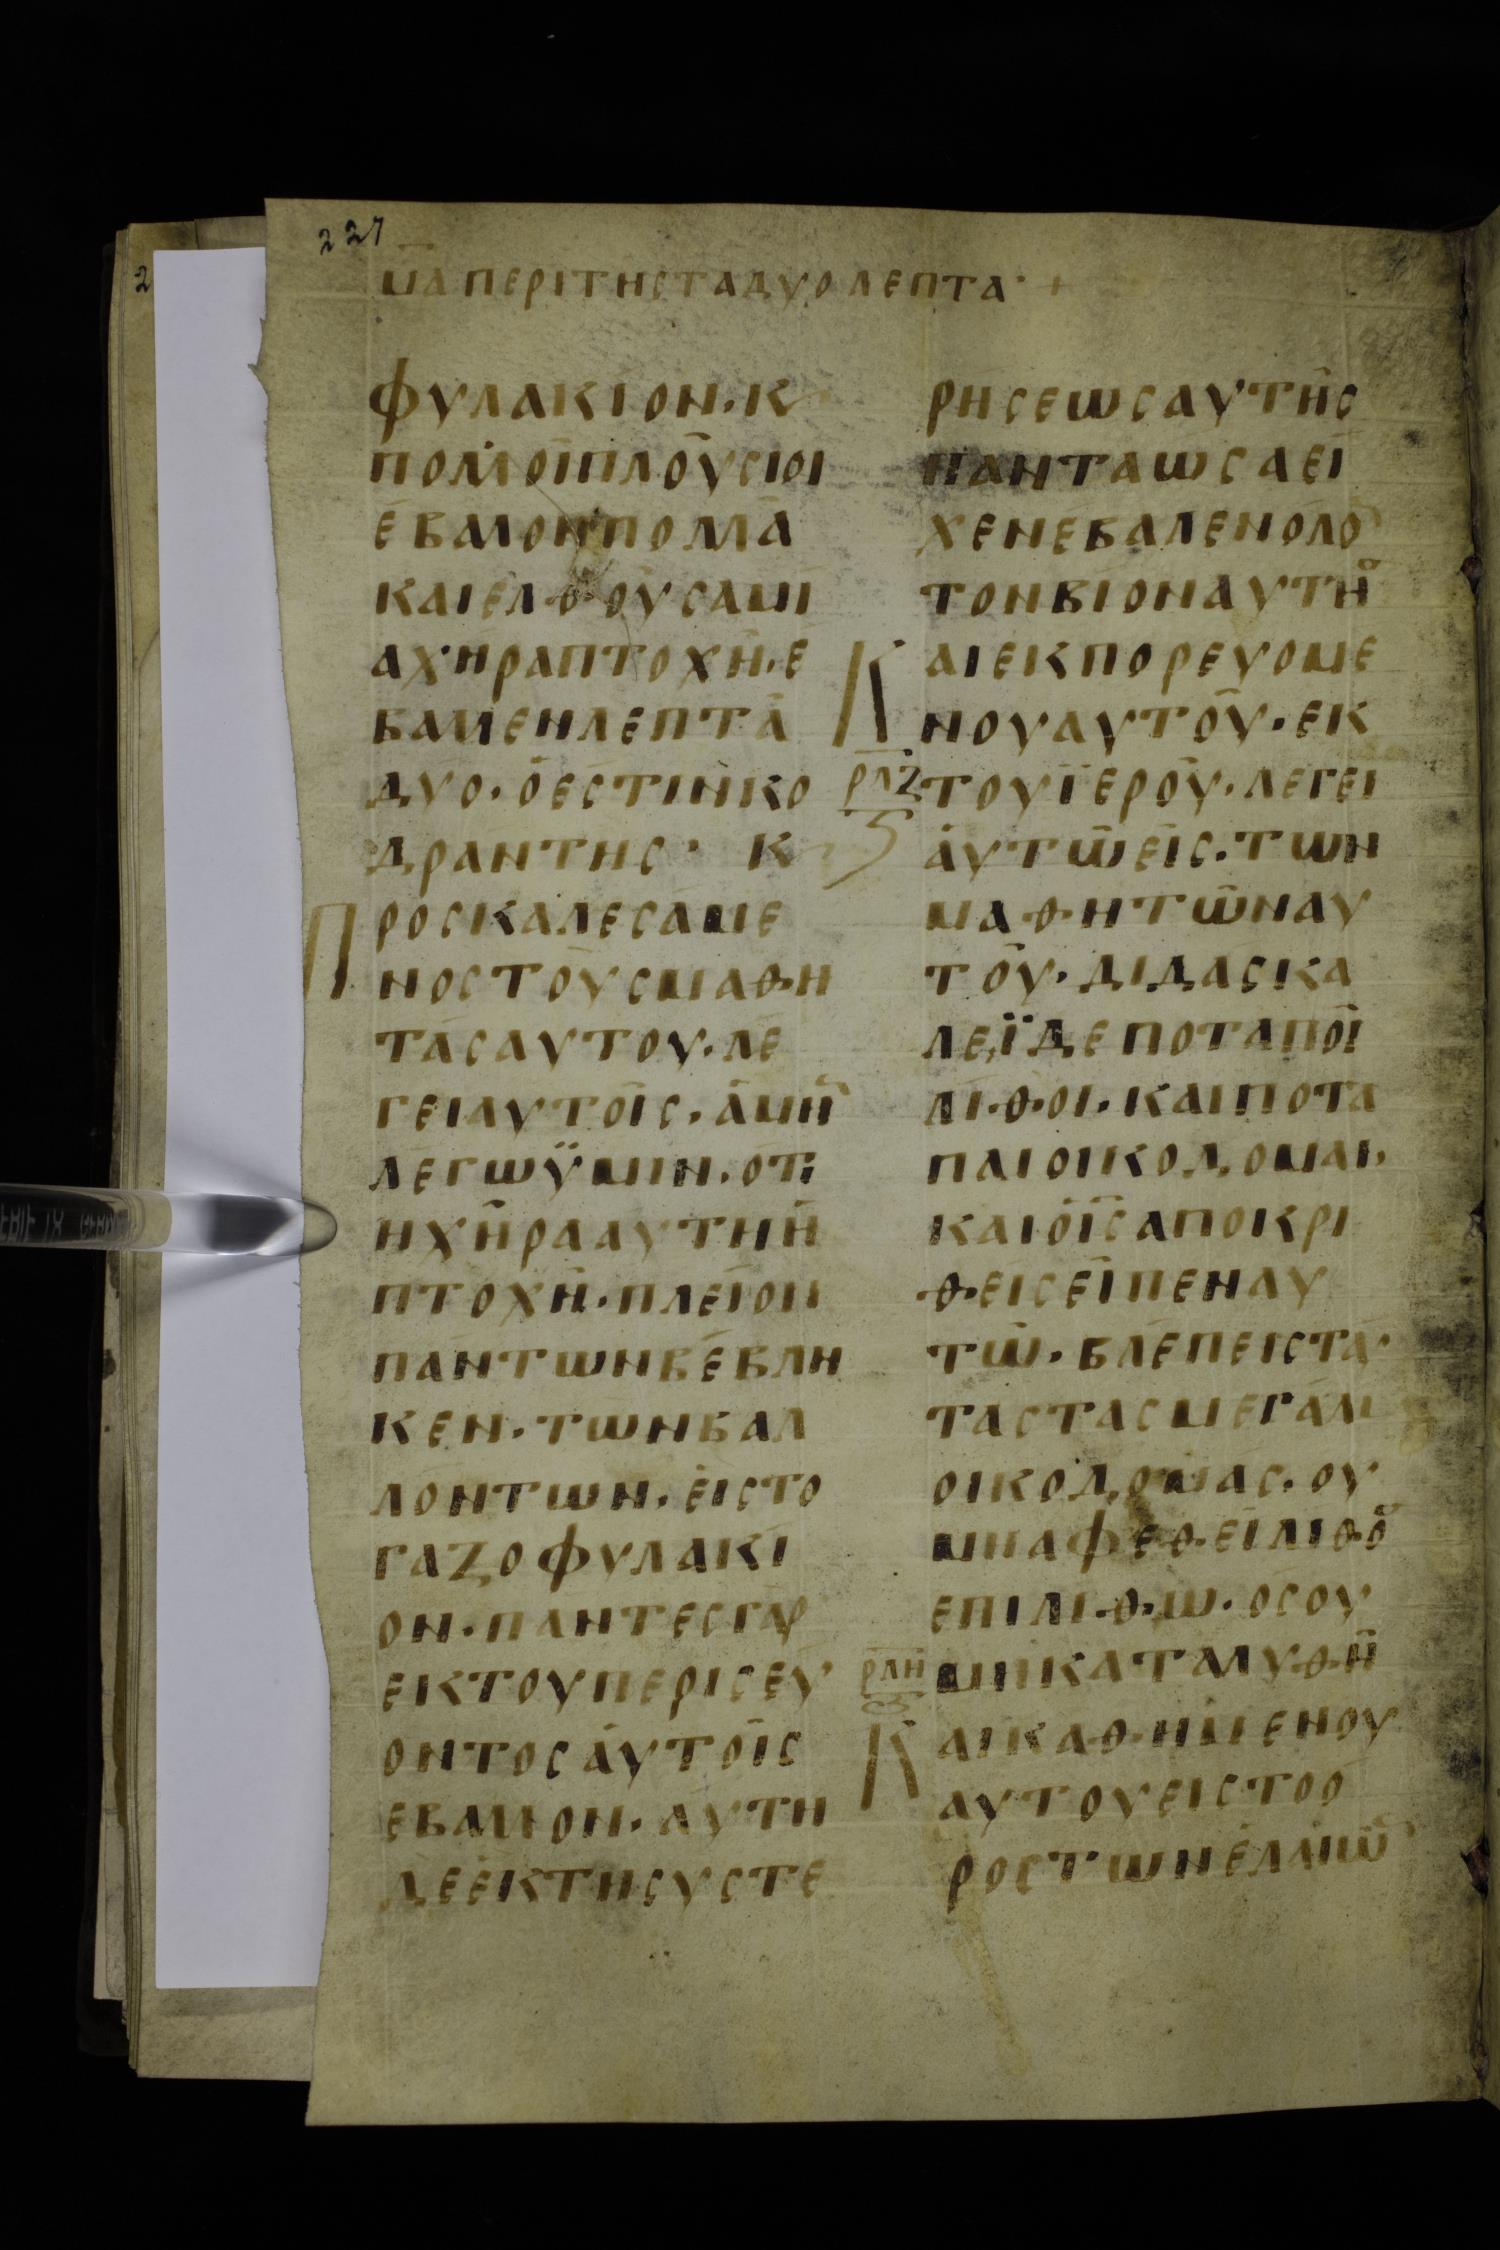 227
2
ΜΑ ΠΕΡΙ ΤΗΣ ΤΑ ΔΥΟ ΛΕΠΤΑ· +
ΦΥΛΑΚΙΟΝ· Κ
ΠΟΛΛΟΙ ΠΛΟΥСΙΟΙ
ΕΒΑΛΛΟΝ ΠΟΛΛΑ
ΚΑΙ ΕΛΘΟΥСΑ ΜΙ
Α ΧΗΡΑ ΠΤΟΧΗ· Ε
ΒΑΛΛΕΝ ΛΕΠΤΑ
ΔΥΟ· Ο ΕСΤΙΝ ΚΟ
ΔΡΑΝΤΗС· Κ
ΠΡΟСΚΑΛΕСΑΜΕ
ΝΟС ΤΟΥС ΜΑΘΗ
ΤΑС ΑΥΤΟΥ· ΛΕ
ΓΕΙ ΑΥΤΟΙС· ΑΜΗ
ΛΕΓΩ ΫΜΙΝ· ΟΤΙ
Η ΧΗΡΑ ΑΥΤΗ Η
ΠΤΟΧΗ· ΠΛΕΙΟΝ
ΠΑΝΤΩΝ ΒΕΒΛΗ
ΚΕΝ· ΤΩΝ ΒΑΛ
ΛΟΝΤΩΝ· ΕΙС ΤΟ
ΓΑΖΟΦΥΛΑΚΙ
ΟΝ· ΠΑΝΤΕС ΓΑΡ
ΕΚ ΤΟΥ ΠΕΡΙСΕΥ
ΟΝΤΟС ΑΥΤΟΙС
ΕΒΑΛΛΟΝ· ΑΥΤΗ
ΔΕ ΕΚ ΤΗС ΥСΤΕ
ΡΗСΕΩС ΑΥΤΗС
ΠΑΝΤΑ ΩС ΑΕΙ
ΧΕΝ ΕΒΑΛΕΝ ΟΛΟ
ΤΟΝ ΒΙΟΝ ΑΥΤΗС
ΚΑΙ ΕΚΠΟΡΕΥΟΜΕ
ΝΟΥ ΑΥΤΟΥ· ΕΚ
ΡΛΖ ΤΟΥ ΪΕΡΟΥ· ΛΕΓΕΙ
Ϛ ΑΥΤΩ ΕΙС· ΤΩΝ
ΜΑΘΗΤΩΝ ΑΥ
ΤΟΥ· ΔΙΔΑСΚΑ
ΛΕ, ΪΔΕ ΠΟΤΑΠΟΙ
ΛΙΘΟΙ· ΚΑΙ ΠΟΤΑ
ΠΑΙ ΟΙΚΟΔΟΜΑΙ·
ΚΑΙ Ο ΙС ΑΠΟΚΡΙ
ΘΕΙС ΕΙΠΕΝ ΑΥ
ΤΩ· ΒΛΕΠΕΙС ΤΑΥ
ΤΑС ΤΑС ΜΕΓΑΛΑС
ΟΙΚΟΔΟΜΑС· ΟΥ
ΜΗ ΑΦΕΘΕΙ ΛΙΘΟ
ΕΠΙ ΛΙΘΩ· ΟС ΟΥ
ΡΛΗ ΜΗ ΚΑΤΑΛΥΘΗ
Ϛ ΚΑΙ ΚΑΘΗΜΕΝΟΥ
ΑΥΤΟΥ ΕΙС ΤΟ Ο
ΡΟС ΤΩΝ ΕΛΑΙΩ